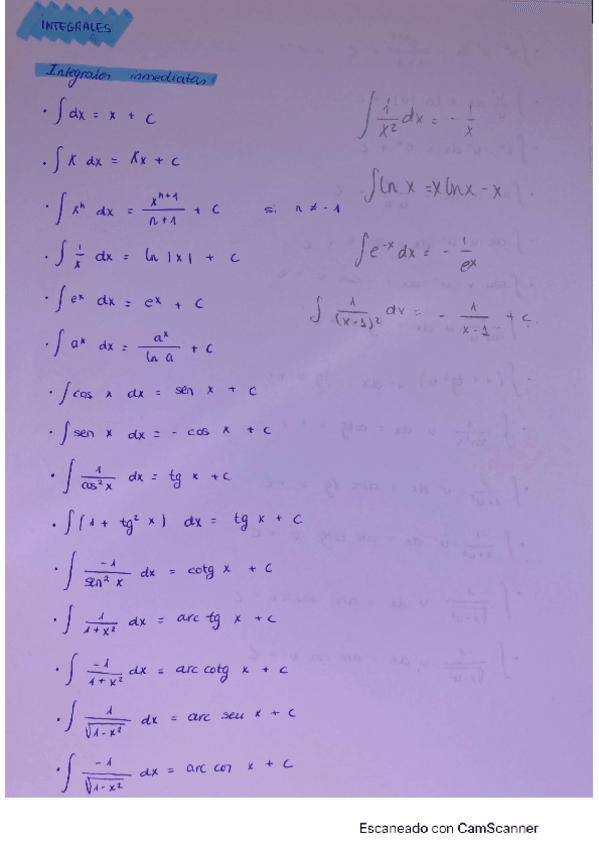 INTEGRALES
Integrales inmediatas
· ∫ dx = x + C
· ∫ K dx = Kx + C
· ∫ xⁿ dx = xⁿ⁺¹/(n+1) + C si n ≠ -1
· ∫ 1/x dx = ln |x| + C
· ∫ eˣ dx = eˣ + C
· ∫ aˣ dx = aˣ/ln a + C
· ∫ cos x dx = sen x + C
· ∫ sen x dx = - cos x + C
· ∫ 1/cos² x dx = tg x + C
· ∫ (1 + tg² x) dx = tg x + C
· ∫ -1/sen² x dx = cotg x + C
· ∫ 1/(1+x²) dx = arc tg x + C
· ∫ -1/(1+x²) dx = arc cotg x + C
· ∫ 1/√(1-x²) dx = arc sen x + C
· ∫ -1/√(1-x²) dx = arc cos x + C
∫ 1/x² dx = - 1/x
∫ ln x = x ln x - x
∫ e⁻ˣ dx = - 1/eˣ
∫ 1/(x-1)² dx = - 1/(x-1) + C.
Escaneado con CamScanner